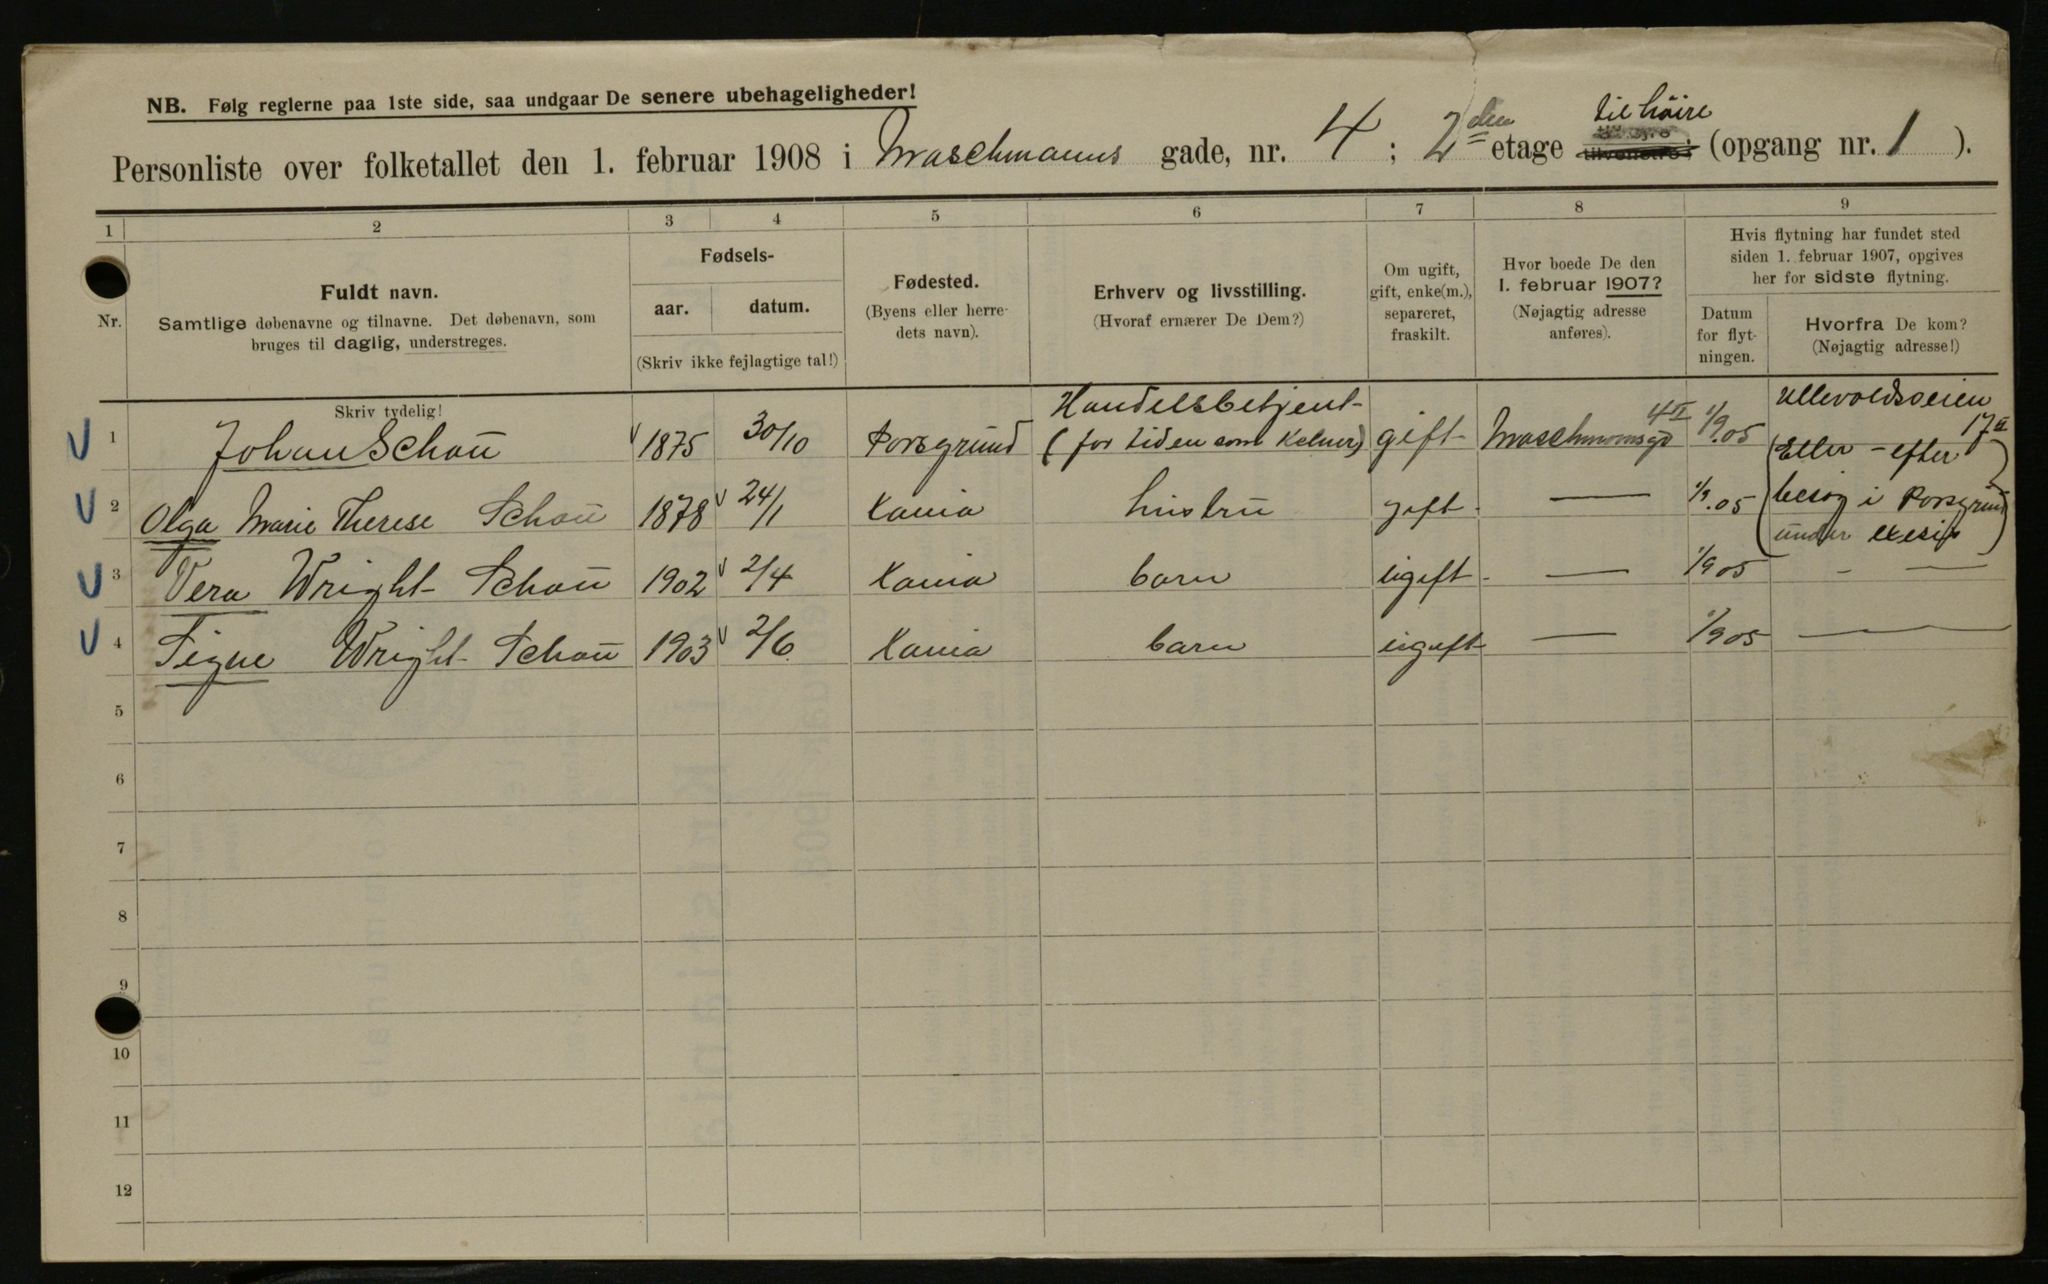 NB. Følg reglerne paa 1ste side, saa undgaar De senere ubehageligheder!
til høire
Personliste over folketallet den 1. februar 1908 i Maschmanns gade, nr. 4; 2den etage (opgang nr. 1).
1 2 3 4 5 6 7 8 9
Nr.
Fuldt navn.
Samtlige døbenavne og tilnavne. Det døbenavn, som
bruges til daglig, understreges.
Skriv tydelig!
Fødsels-
aar. datum.
(Skriv ikke fejlagtige tal!)
Fødested.
(Byens eller herre-
dets navn).
Erhverv og livsstilling.
(Hvoraf ernærer De Dem?)
Om ugift,
gift, enke(m.),
separeret,
fraskilt.
Hvor boede De den
1. februar 1907?
(Nøjagtig adresse
anføres).
Hvis flytning har fundet sted
siden 1. februar 1907, opgives
her for sidste flytning.
Datum
for flyt-
ningen.
Hvorfra De kom?
(Nøjagtig adresse!)
1 Johan Schou 1875 30/10 Porsgrund Handelsbetjent (for tiden som Kelner) gift Maschmannsgd 4 II 1/9.05 Ullevoldsveien 17 II
(Eller - efter
besøg i Porsgrund
under
2 Olga Marie Therese Schou 1878 24/1 Kania hustru gift — 1/9.05
3 Vera Wright Schou 1902 2/4 Kania barn ugift — 1/9 05 - —
4 Signe Wright Schou 1903 2/6 Kania barn ugift — 1/9 05 —
5
6
7
8
9
10
11
12